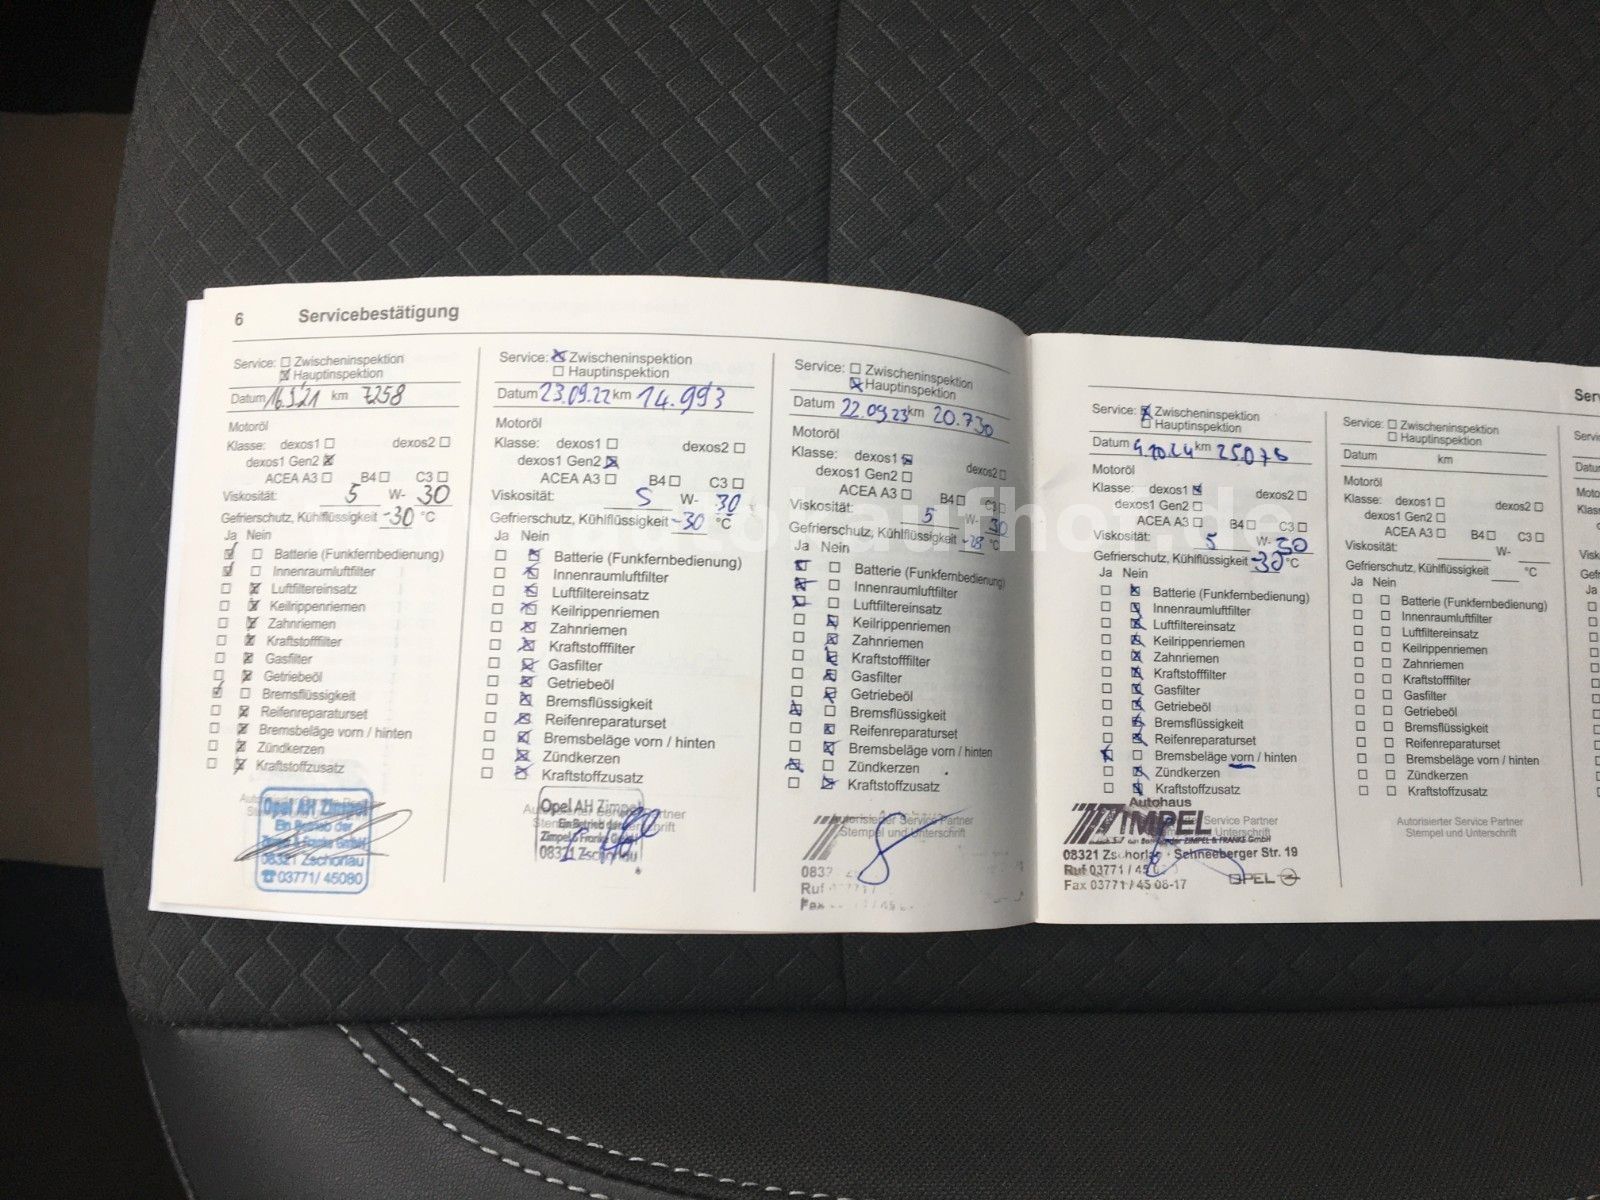 6 Servicebestätigung
Service: ☐ Zwischeninspektion
☒ Hauptinspektion
Datum 16.9.21 km 7258
Motoröl
Klasse: dexos1 ☐ dexos2 ☐
dexos1 Gen2 ☒
ACEA A3 ☐ B4 ☐ C3 ☐
Viskosität: 5 W- 30
Gefrierschutz, Kühlflüssigkeit -30 °C
Ja Nein
☒ ☐ Batterie (Funkfernbedienung)
☒ ☐ Innenraumluftfilter
☐ ☒ Luftfiltereinsatz
☐ ☒ Keilrippenriemen
☐ ☒ Zahnriemen
☐ ☒ Kraftstofffilter
☐ ☒ Gasfilter
☐ ☒ Getriebeöl
☒ ☐ Bremsflüssigkeit
☐ ☒ Reifenreparaturset
☐ ☒ Bremsbeläge vorn / hinten
☐ ☒ Zündkerzen
☐ ☒ Kraftstoffzusatz
Opel AH Zimpel
Ein Betrieb der
Zimpel & Franke GmbH
08321 Zschorlau
☎ 03771 / 45080
Service: ☒ Zwischeninspektion
☐ Hauptinspektion
Datum 23.09.22 km 14.993
Motoröl
Klasse: dexos1 ☐ dexos2 ☐
dexos1 Gen2 ☒
ACEA A3 ☐ B4 ☐ C3 ☐
Viskosität: 5 W- 30
Gefrierschutz, Kühlflüssigkeit -30 °C
Ja Nein
☐ ☒ Batterie (Funkfernbedienung)
☐ ☒ Innenraumluftfilter
☐ ☒ Luftfiltereinsatz
☐ ☒ Keilrippenriemen
☐ ☒ Zahnriemen
☐ ☒ Kraftstofffilter
☐ ☒ Gasfilter
☐ ☒ Getriebeöl
☐ ☒ Bremsflüssigkeit
☐ ☒ Reifenreparaturset
☐ ☒ Bremsbeläge vorn / hinten
☐ ☒ Zündkerzen
☐ ☒ Kraftstoffzusatz
Opel AH Zimpel
Ein Betrieb der
Zimpel & Franke GmbH
08321 Zschorlau
Service: ☐ Zwischeninspektion
☒ Hauptinspektion
Datum 22.09.23 km 20.730
Motoröl
Klasse: dexos1 ☒ dexos2 ☐
dexos1 Gen2 ☐
ACEA A3 ☐ B4 ☐ C3 ☐
Viskosität: 5 W- 30
Gefrierschutz, Kühlflüssigkeit -28 °C
Ja Nein
☒ ☐ Batterie (Funkfernbedienung)
☒ ☐ Innenraumluftfilter
☒ ☐ Luftfiltereinsatz
☐ ☒ Keilrippenriemen
☐ ☒ Zahnriemen
☐ ☒ Kraftstofffilter
☐ ☒ Gasfilter
☐ ☒ Getriebeöl
☒ ☐ Bremsflüssigkeit
☐ ☒ Reifenreparaturset
☐ ☒ Bremsbeläge vorn / hinten
☒ ☐ Zündkerzen
☐ ☒ Kraftstoffzusatz
Autorisierter Service Partner
Stempel und Unterschrift
Ruf
Fax
Service: ☒ Zwischeninspektion
☐ Hauptinspektion
Datum 4.10.24 km 25.076
Motoröl
Klasse: dexos1 ☒ dexos2 ☐
dexos1 Gen2 ☐
ACEA A3 ☐ B4 ☐ C3 ☐
Viskosität: 5 W- 30
Gefrierschutz, Kühlflüssigkeit -30 °C
Ja Nein
☐ ☒ Batterie (Funkfernbedienung)
☐ ☒ Innenraumluftfilter
☐ ☒ Luftfiltereinsatz
☐ ☒ Keilrippenriemen
☐ ☒ Zahnriemen
☐ ☒ Kraftstofffilter
☐ ☒ Gasfilter
☐ ☒ Getriebeöl
☐ ☒ Bremsflüssigkeit
☐ ☒ Reifenreparaturset
☒ ☐ Bremsbeläge vorn / hinten
☐ ☒ Zündkerzen
☐ ☒ Kraftstoffzusatz
Autohaus
ZIMPEL
Service Partner
08321 Zschorlau · Schneeberger Str. 19
Ruf 03771 / 45
Fax 03771 / 45 08-17 OPEL
Service: ☐ Zwischeninspektion
☐ Hauptinspektion
Datum km
Motoröl
Klasse: dexos1 ☐ dexos2 ☐
dexos1 Gen2 ☐
ACEA A3 ☐ B4 ☐ C3 ☐
Viskosität: W-
Gefrierschutz, Kühlflüssigkeit °C
Ja Nein
☐ ☐ Batterie (Funkfernbedienung)
☐ ☐ Innenraumluftfilter
☐ ☐ Luftfiltereinsatz
☐ ☐ Keilrippenriemen
☐ ☐ Zahnriemen
☐ ☐ Kraftstofffilter
☐ ☐ Gasfilter
☐ ☐ Getriebeöl
☐ ☐ Bremsflüssigkeit
☐ ☐ Reifenreparaturset
☐ ☐ Bremsbeläge vorn / hinten
☐ ☐ Zündkerzen
☐ ☐ Kraftstoffzusatz
Autorisierter Service Partner
Stempel und Unterschrift